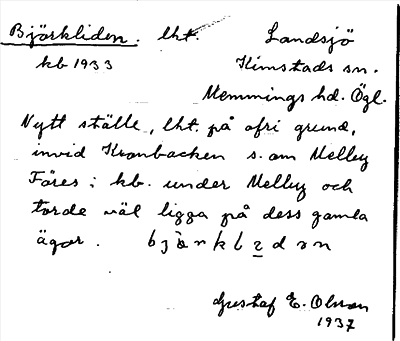 Björkliden. lht. Landsjö
kb 1933 Kimstads sn.
Memmings hd. Ögl.
Nytt ställe, lht. på ofri grund,
invid Kronbacken s. om Melby
Föres i kb. under Melby och
torde väl ligga på dess gamla
ägor.
Gustaf E. Olsson
1937